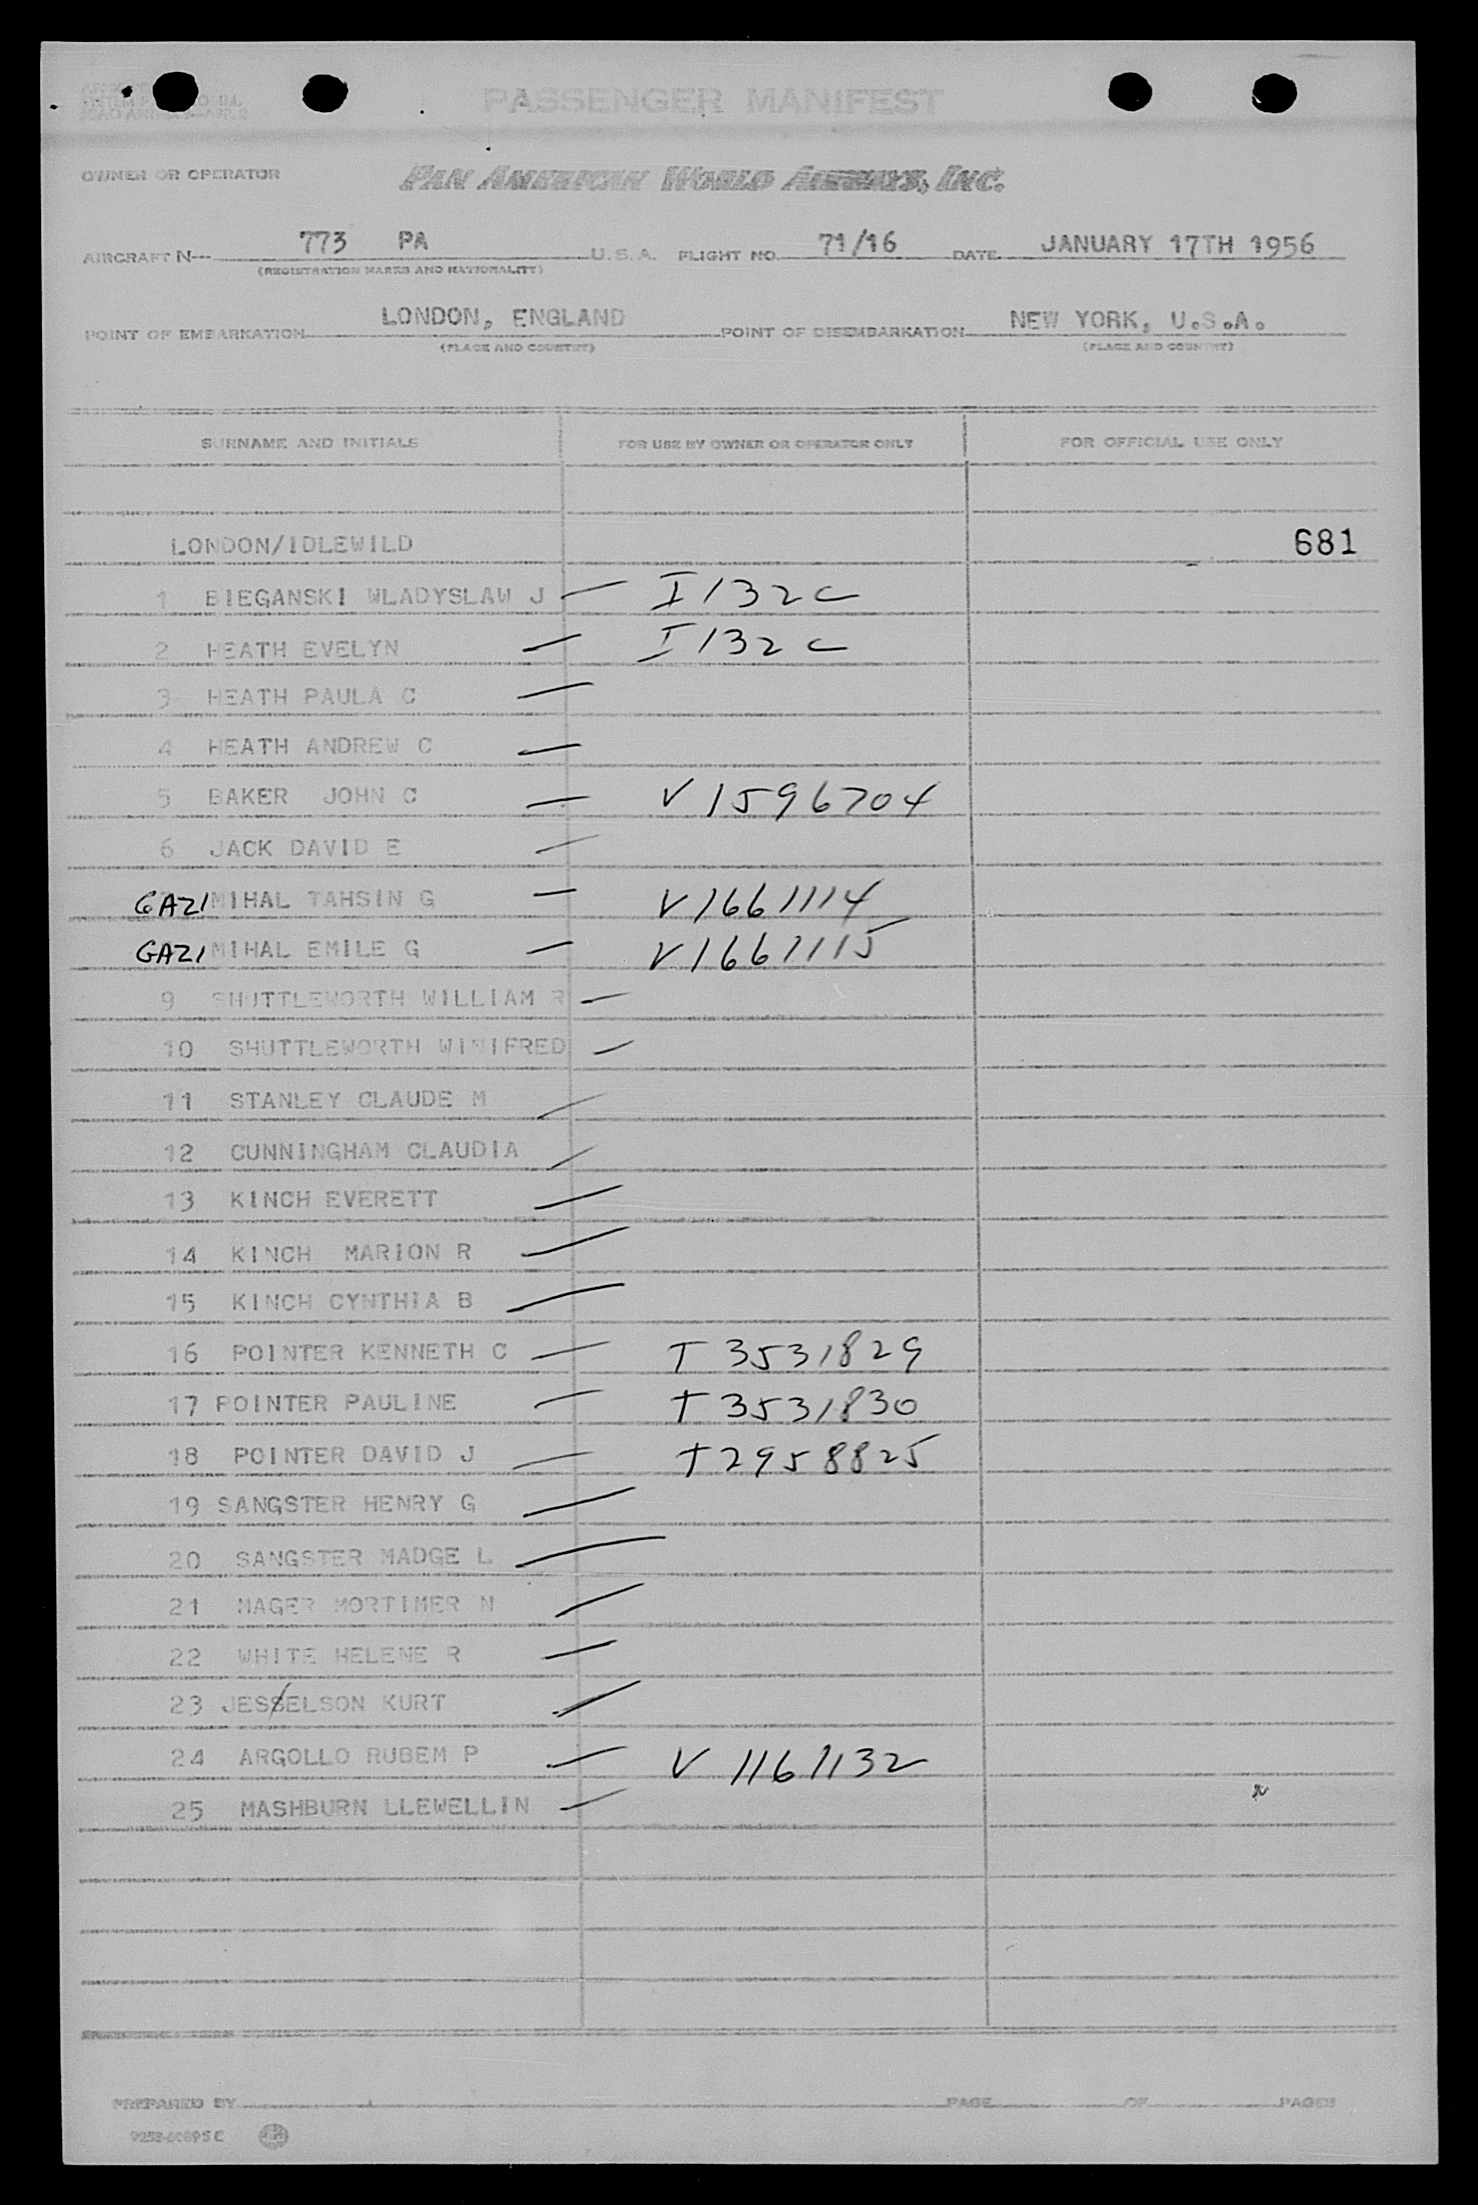 PASSENGER MANIFEST
OWNER OR OPERATOR PAN AMERICAN WORLD AIRWAYS, INC.
AIRCRAFT N 773 PA U.S.A. FLIGHT NO. 71/16 DATE JANUARY 17TH 1956
(REGISTRATION MARKS AND NATIONALITY)
POINT OF EMBARKATION LONDON, ENGLAND POINT OF DISEMBARKATION NEW YORK, U.S.A.
(PLACE AND COUNTRY) (PLACE AND COUNTRY)
SURNAME AND INITIALS FOR USE BY OWNER OR OPERATOR ONLY FOR OFFICIAL USE ONLY
LONDON/IDLEWILD 681
1 BIEGANSKI WLADYSLAW J — I 132 C
2 HEATH EVELYN — I 132 C
3 HEATH PAULA C —
4 HEATH ANDREW C —
5 BAKER JOHN C — V 1596704
6 JACK DAVID E —
GAZI MIHAL TAHSIN G — V 1661114
GAZI MIHAL EMILE G — V 1661115
9 SHUTTLEWORTH WILLIAM R —
10 SHUTTLEWORTH WINIFRED —
11 STANLEY CLAUDE M —
12 CUNNINGHAM CLAUDIA —
13 KINCH EVERETT —
14 KINCH MARION R —
15 KINCH CYNTHIA B —
16 POINTER KENNETH C — T 3531829
17 POINTER PAULINE — T 3531830
18 POINTER DAVID J — T 2958825
19 SANGSTER HENRY G —
20 SANGSTER MADGE L —
21 MAGER MORTIMER N —
22 WHITE HELENE R —
23 JESSELSON KURT —
24 ARGOLLO RUBEM P — V 1161132
25 MASHBURN LLEWELLIN —
PREPARED BY PAGE OF PAGES